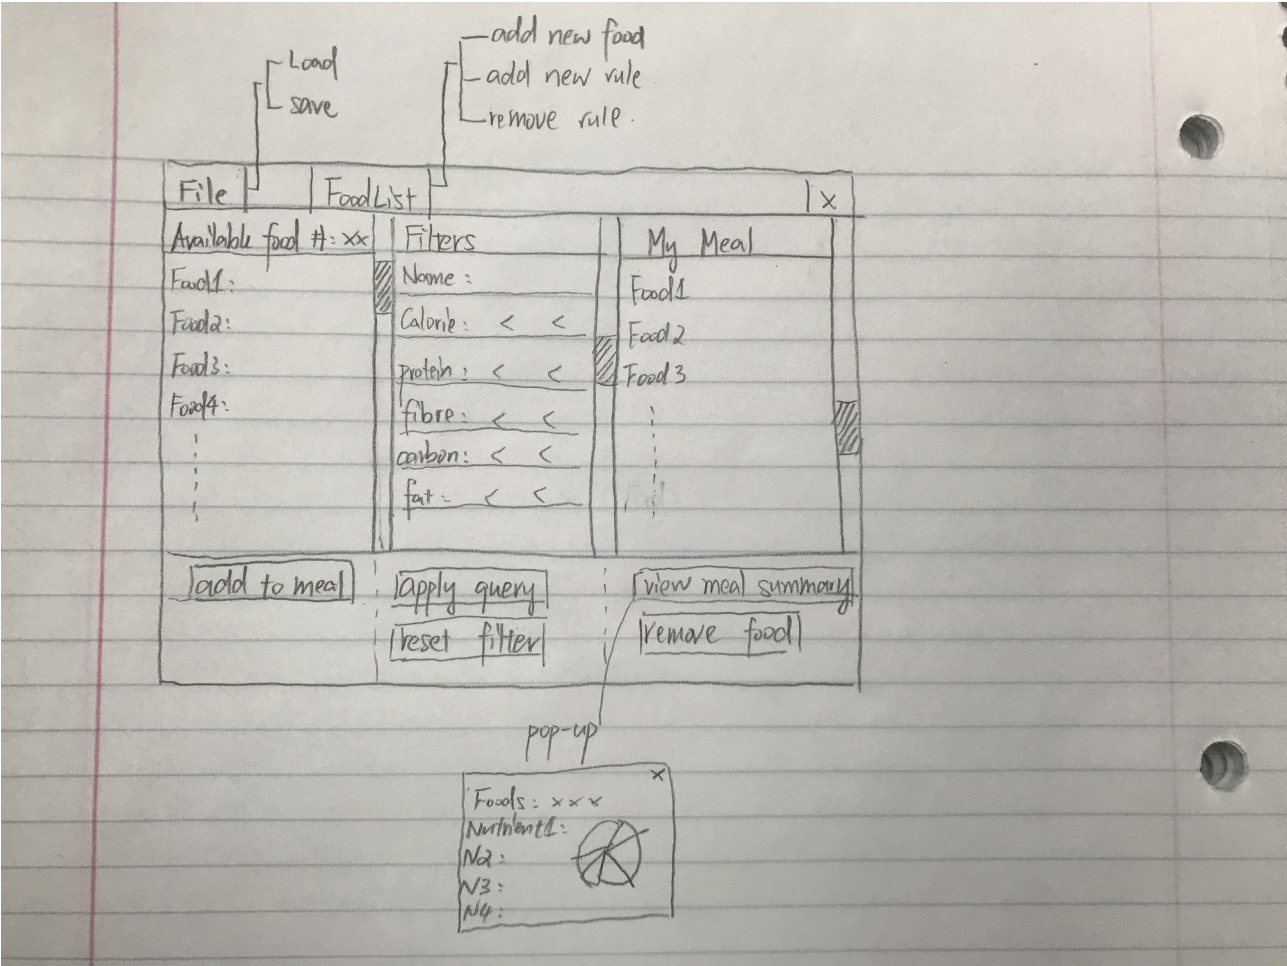 Load
save
add new food
add new rule
remove rule.
File
FoodList
x
Available food #: xx
Food1:
Food2:
Food3:
Food4:
Filters
Name :
Calorie: < <
protein : < <
fibre: < <
carbon: < <
fat: < <
My Meal
Food1
Food2
Food3
add to meal
apply query
reset filter
view meal summary
remove food
pop-up
x
Foods: x x x
Nutrient1:
N2:
N3:
N4: